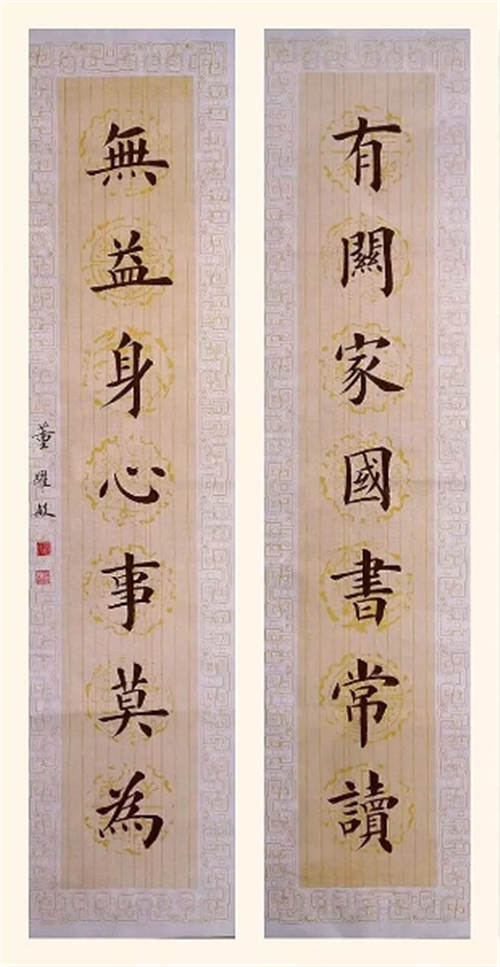 有關家國書常讀
無益身心事莫為
董耀敏